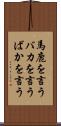 馬鹿を言う
バカを言う
ばかを言う